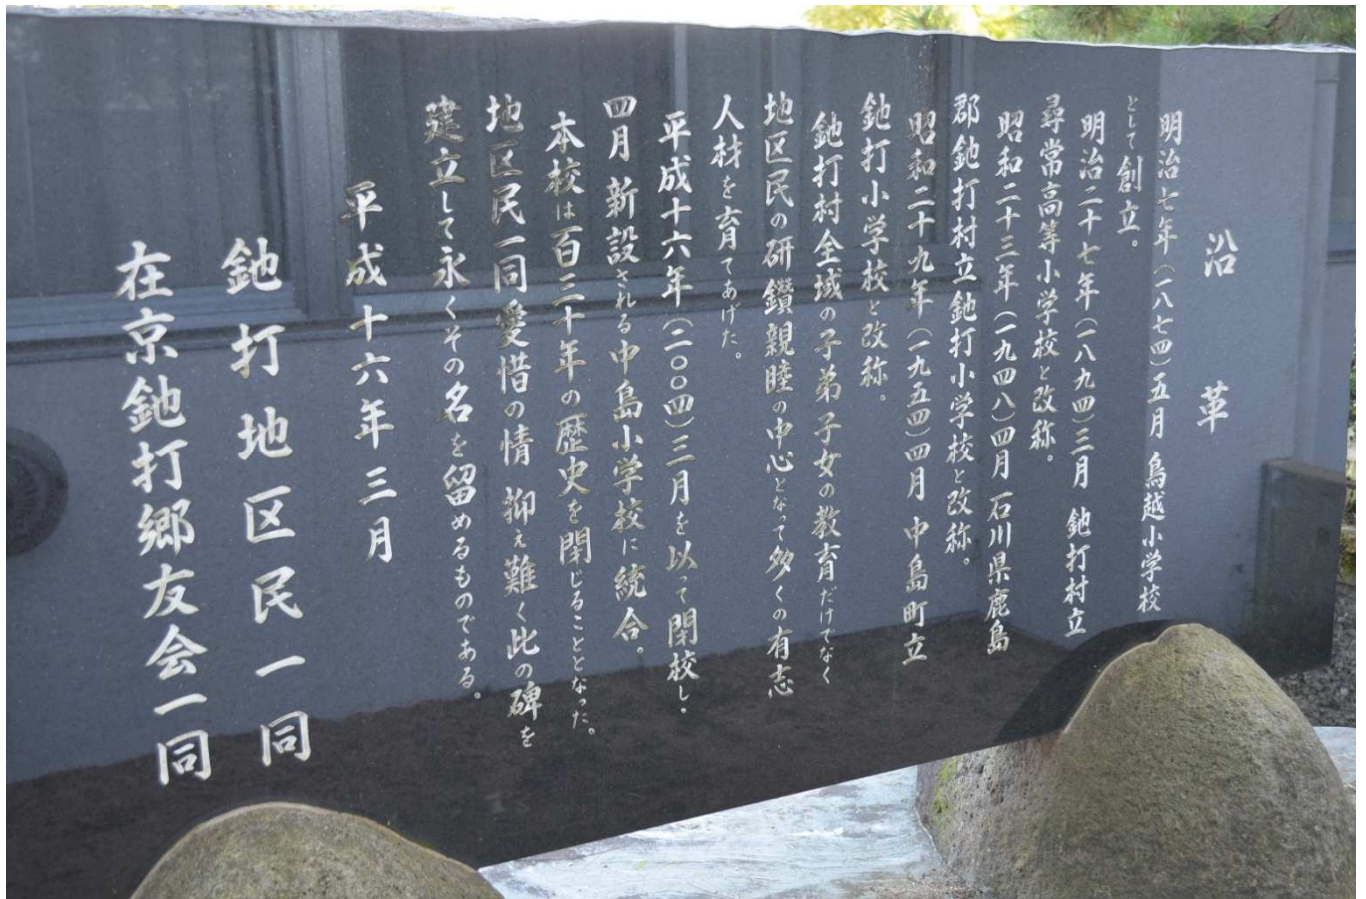 沿革
明治七年（一八七四）五月 鳥越小学校
として創立。
明治二十七年（一八九四）三月 釶打村立
尋常高等小学校と改称。
昭和二十三年（一九四八）四月 石川県鹿島
郡釶打村立釶打小学校と改称。
昭和二十九年（一九五四）四月 中島町立
釶打小学校と改称。
釶打村全域の子弟子女の教育だけでなく
地区民の研鑽親睦の中心となって多くの有志
人材を育てあげた。
平成十六年（二〇〇四）三月を以って閉校し、
四月新設される中島小学校に統合。
本校は百三十年の歴史を閉じることとなった。
地区民一同愛惜の情 抑え難く此の碑を
建立して永くその名を留めるものである。
平成十六年三月
釶打地区民一同
在京釶打郷友会一同